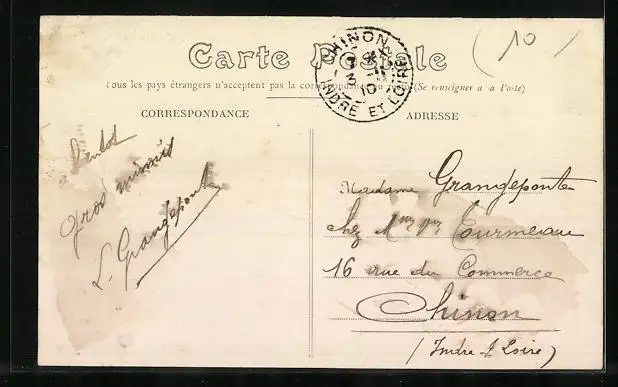 Carte Postale
(10)
CHINON
3 - 11
10
INDRE ET LOIRE
Tous les pays étrangers n'acceptent pas la correspondance au recto (Se renseigner à la Poste)
CORRESPONDANCE
ADRESSE
Gros
L. Grangeponte
Madame Grangeponte
chez Mme Tourmeau
16 rue du Commerce
Chinon
(Indre & Loire)